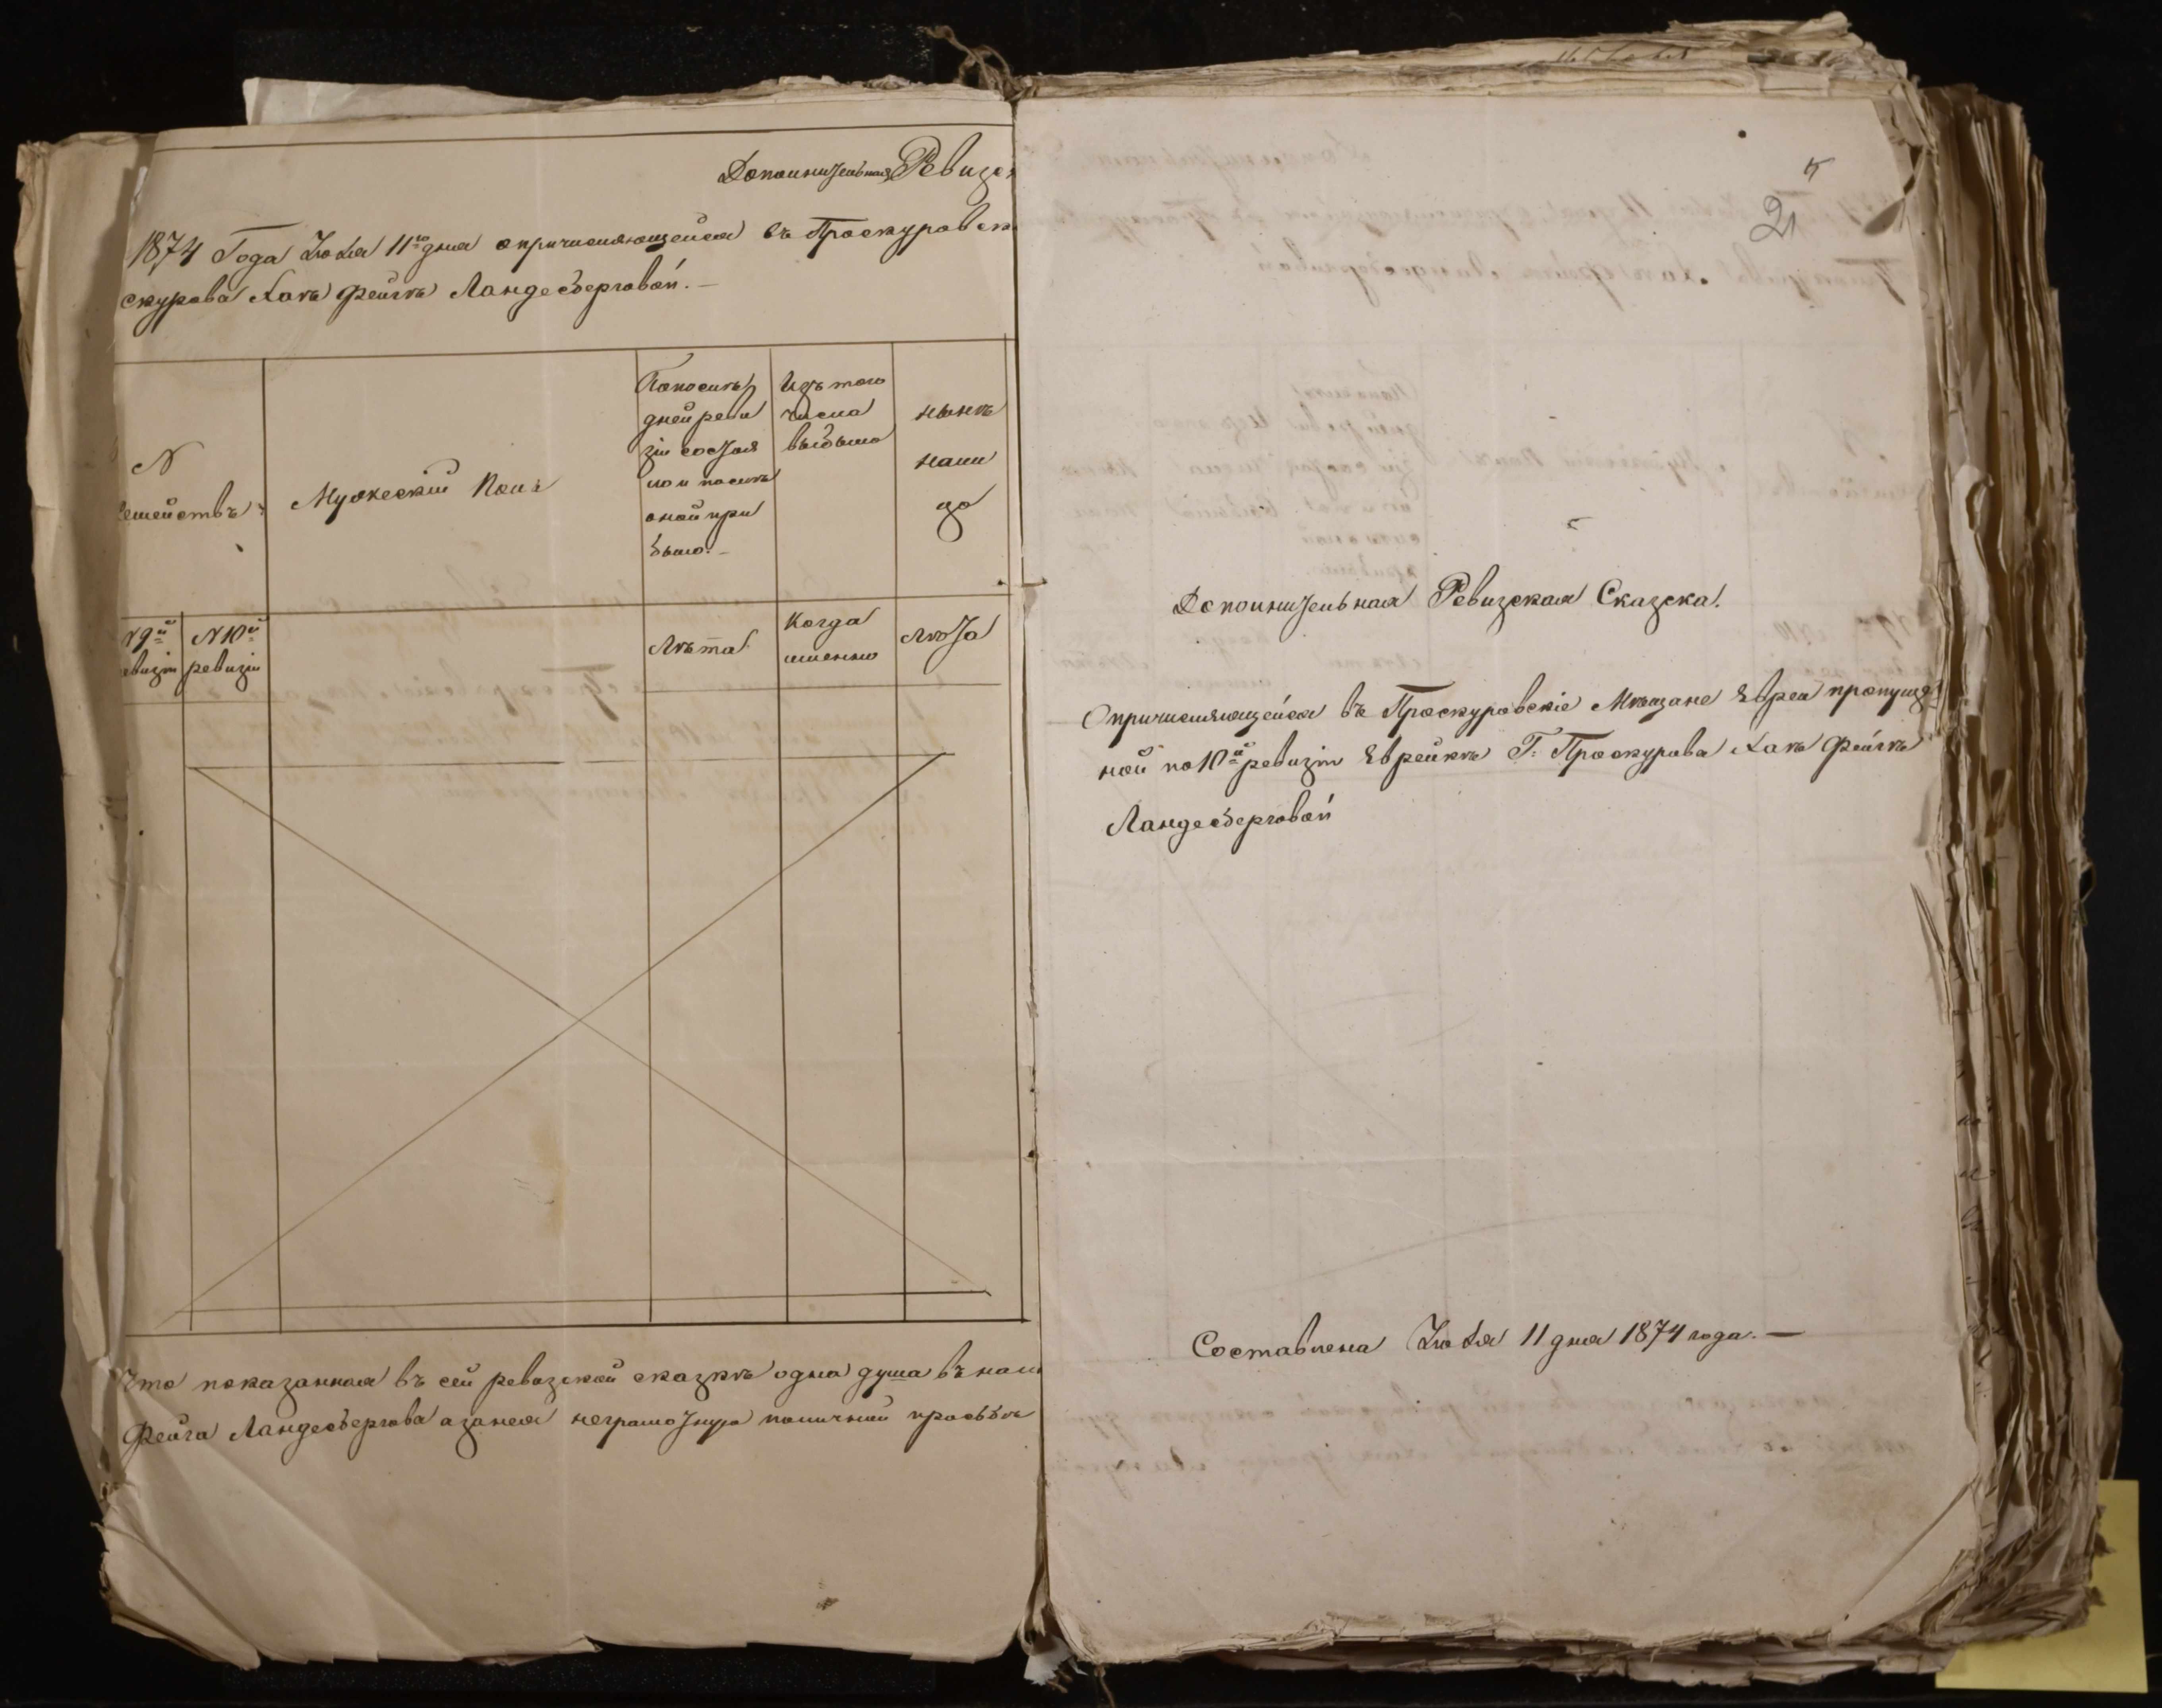 Дополнительная Ревизс
1874 Года Июля 11го дня о причисляющейся въ Проскуровск
скурова Хаѣ Фейгѣ Ландесберговой. —
N
семействъ
Мужескій Полъ
По посл
дней реви
зіи состоя
ло и послѣ
оной при
было. —
Изъ того
числа
выбыло
нынѣ
нали
цо
N 9й
ревизіи
N 10й
ревизіи
Лѣта
Когда
именно
Лѣта
Что показанная въ сей ревизской сказкѣ одна душа въ
Фейга Ландесбергова а за нея неграмотную по личной просьбѣ
21
Дополнительная Ревизская Сказска.
О причисляющейся въ Проскуровскіе Мѣщане Евреи пропущен
ной по 10й ревизіи Еврейкѣ Г. Проскурова Хаѣ Фейгѣ
Ландесберговой
Составлена Июля 11 дня 1874 года. —